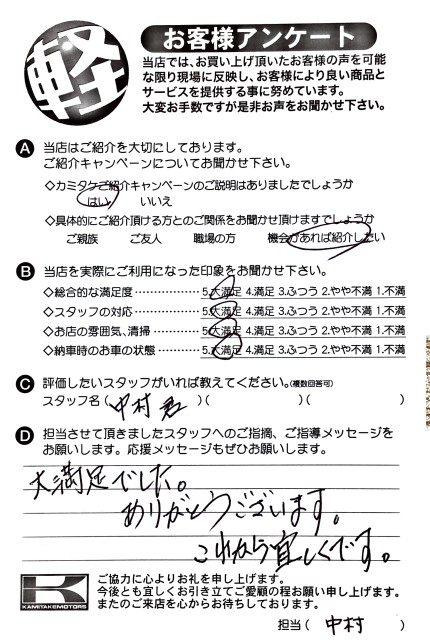 軽
お客様アンケート
当店では、お買い上げ頂いたお客様の声を可能
な限り現場に反映し、お客様により良い商品と
サービスを提供する事に努めています。
大変お手数ですが是非お声をお聞かせ下さい。
A 当店はご紹介を大切にしております。
ご紹介キャンペーンについてお聞かせ下さい。
◇カミタケご紹介キャンペーンのご説明はありましたでしょうか
はい いいえ
◇具体的にご紹介頂ける方とのご関係をお聞かせ頂けますでしょうか
ご親族 ご友人 職場の方 機会があれば紹介したい
B 当店を実際にご利用になった印象をお聞かせ下さい。
◇総合的な満足度…………5.大満足 4.満足 3.ふつう 2.やや不満 1.不満
◇スタッフの対応…………5.大満足 4.満足 3.ふつう 2.やや不満 1.不満
◇お店の雰囲気、清掃………5.大満足 4.満足 3.ふつう 2.やや不満 1.不満
◇納車時のお車の状態………5.大満足 4.満足 3.ふつう 2.やや不満 1.不満
C 評価したいスタッフがいれば教えてください。(複数回答可)
スタッフ名(中村君)( )( )
D 担当させて頂きましたスタッフへのご指摘、ご指導メッセージを
お願いします。応援メッセージもぜひお願いします。
大満足でした。
ありがとうございます。
これからも宜しくです。
K KAMITAKE MOTORS
ご協力に心よりお礼を申し上げます。
今後とも宜しくお引き立てご愛顧の程お願い申し上げます。
またのご来店を心からお待ちしております。
担当(中村)